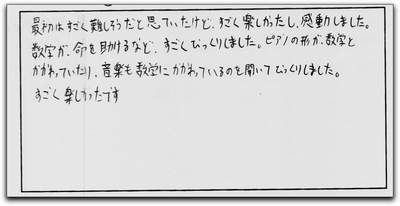 最初はすごく難しそうだと思っていたけど、すごく楽しかったし、感動しました。
数学が、命を助けるなど、すごくびっくりしました。ピアノの形が、数学と
かかわっていたり、音楽も数学にかかわっているのを聞いてびっくりしました。
すごく楽しかったです